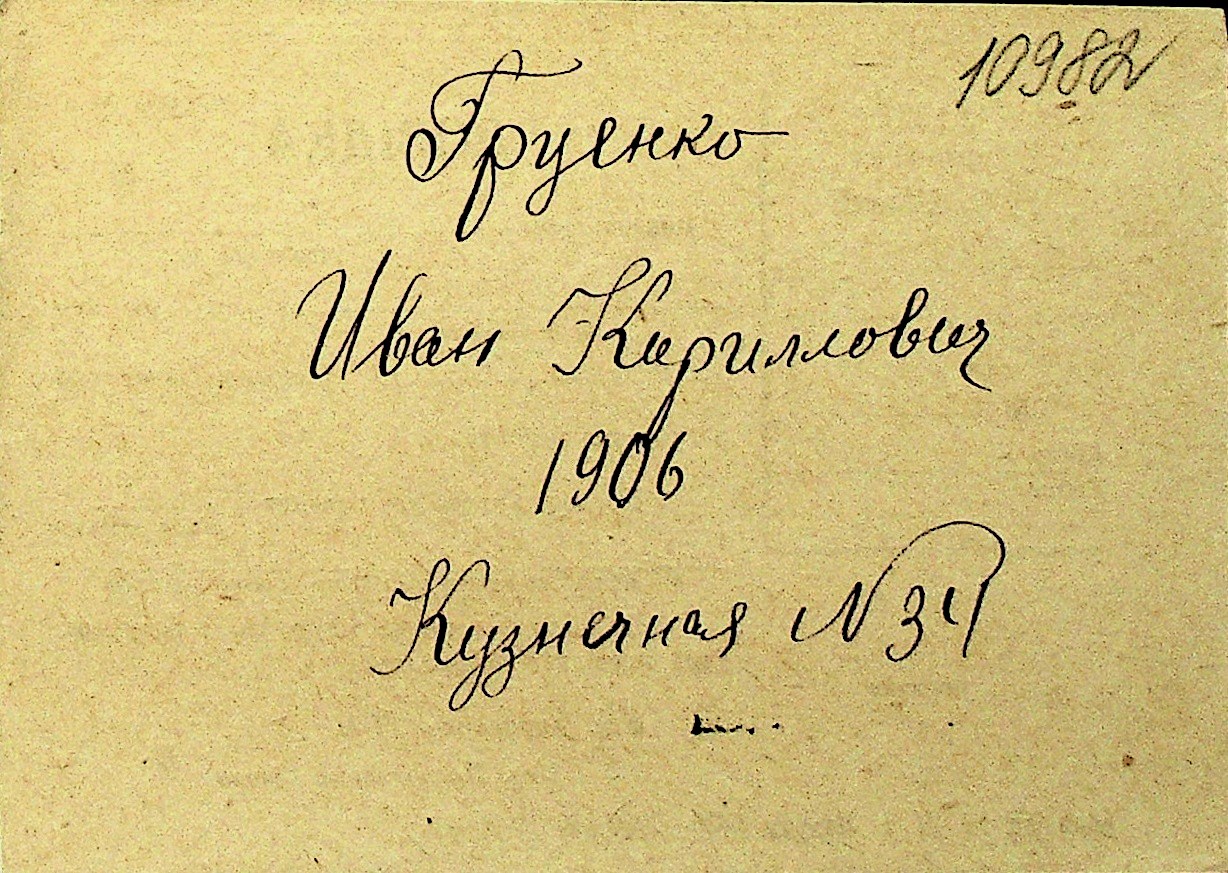 10982
Груенко
Иван Кириллович
1906
Кузнечная N 34